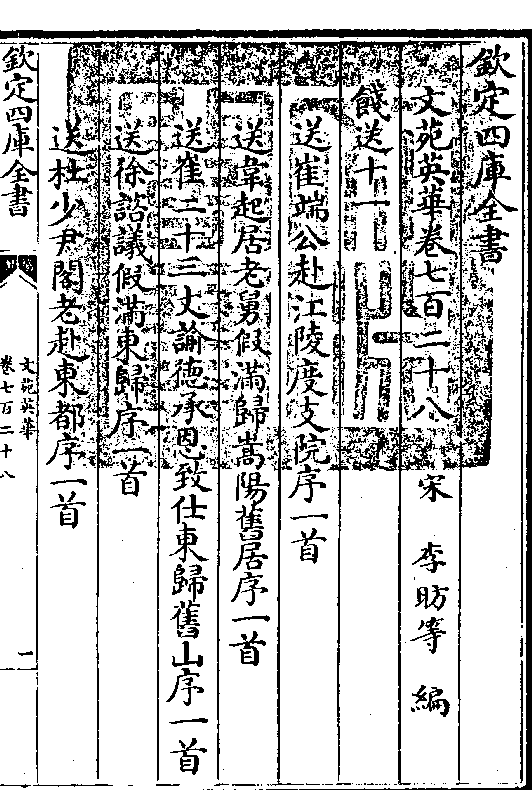 欽定四庫全書
文苑英華卷七百二十八　宋　李昉等　編
餞送十一
送崔端公赴江陵度支院序一首
送韋起居老舅假滿歸嵩陽舊居序一首
送崔二十三丈諭德承恩致仕東歸舊山序一首
送徐諮議假滿東歸序一首
送杜少尹閣老赴東都序一首
欽定四庫全書
文苑英華
卷七百二十八
一